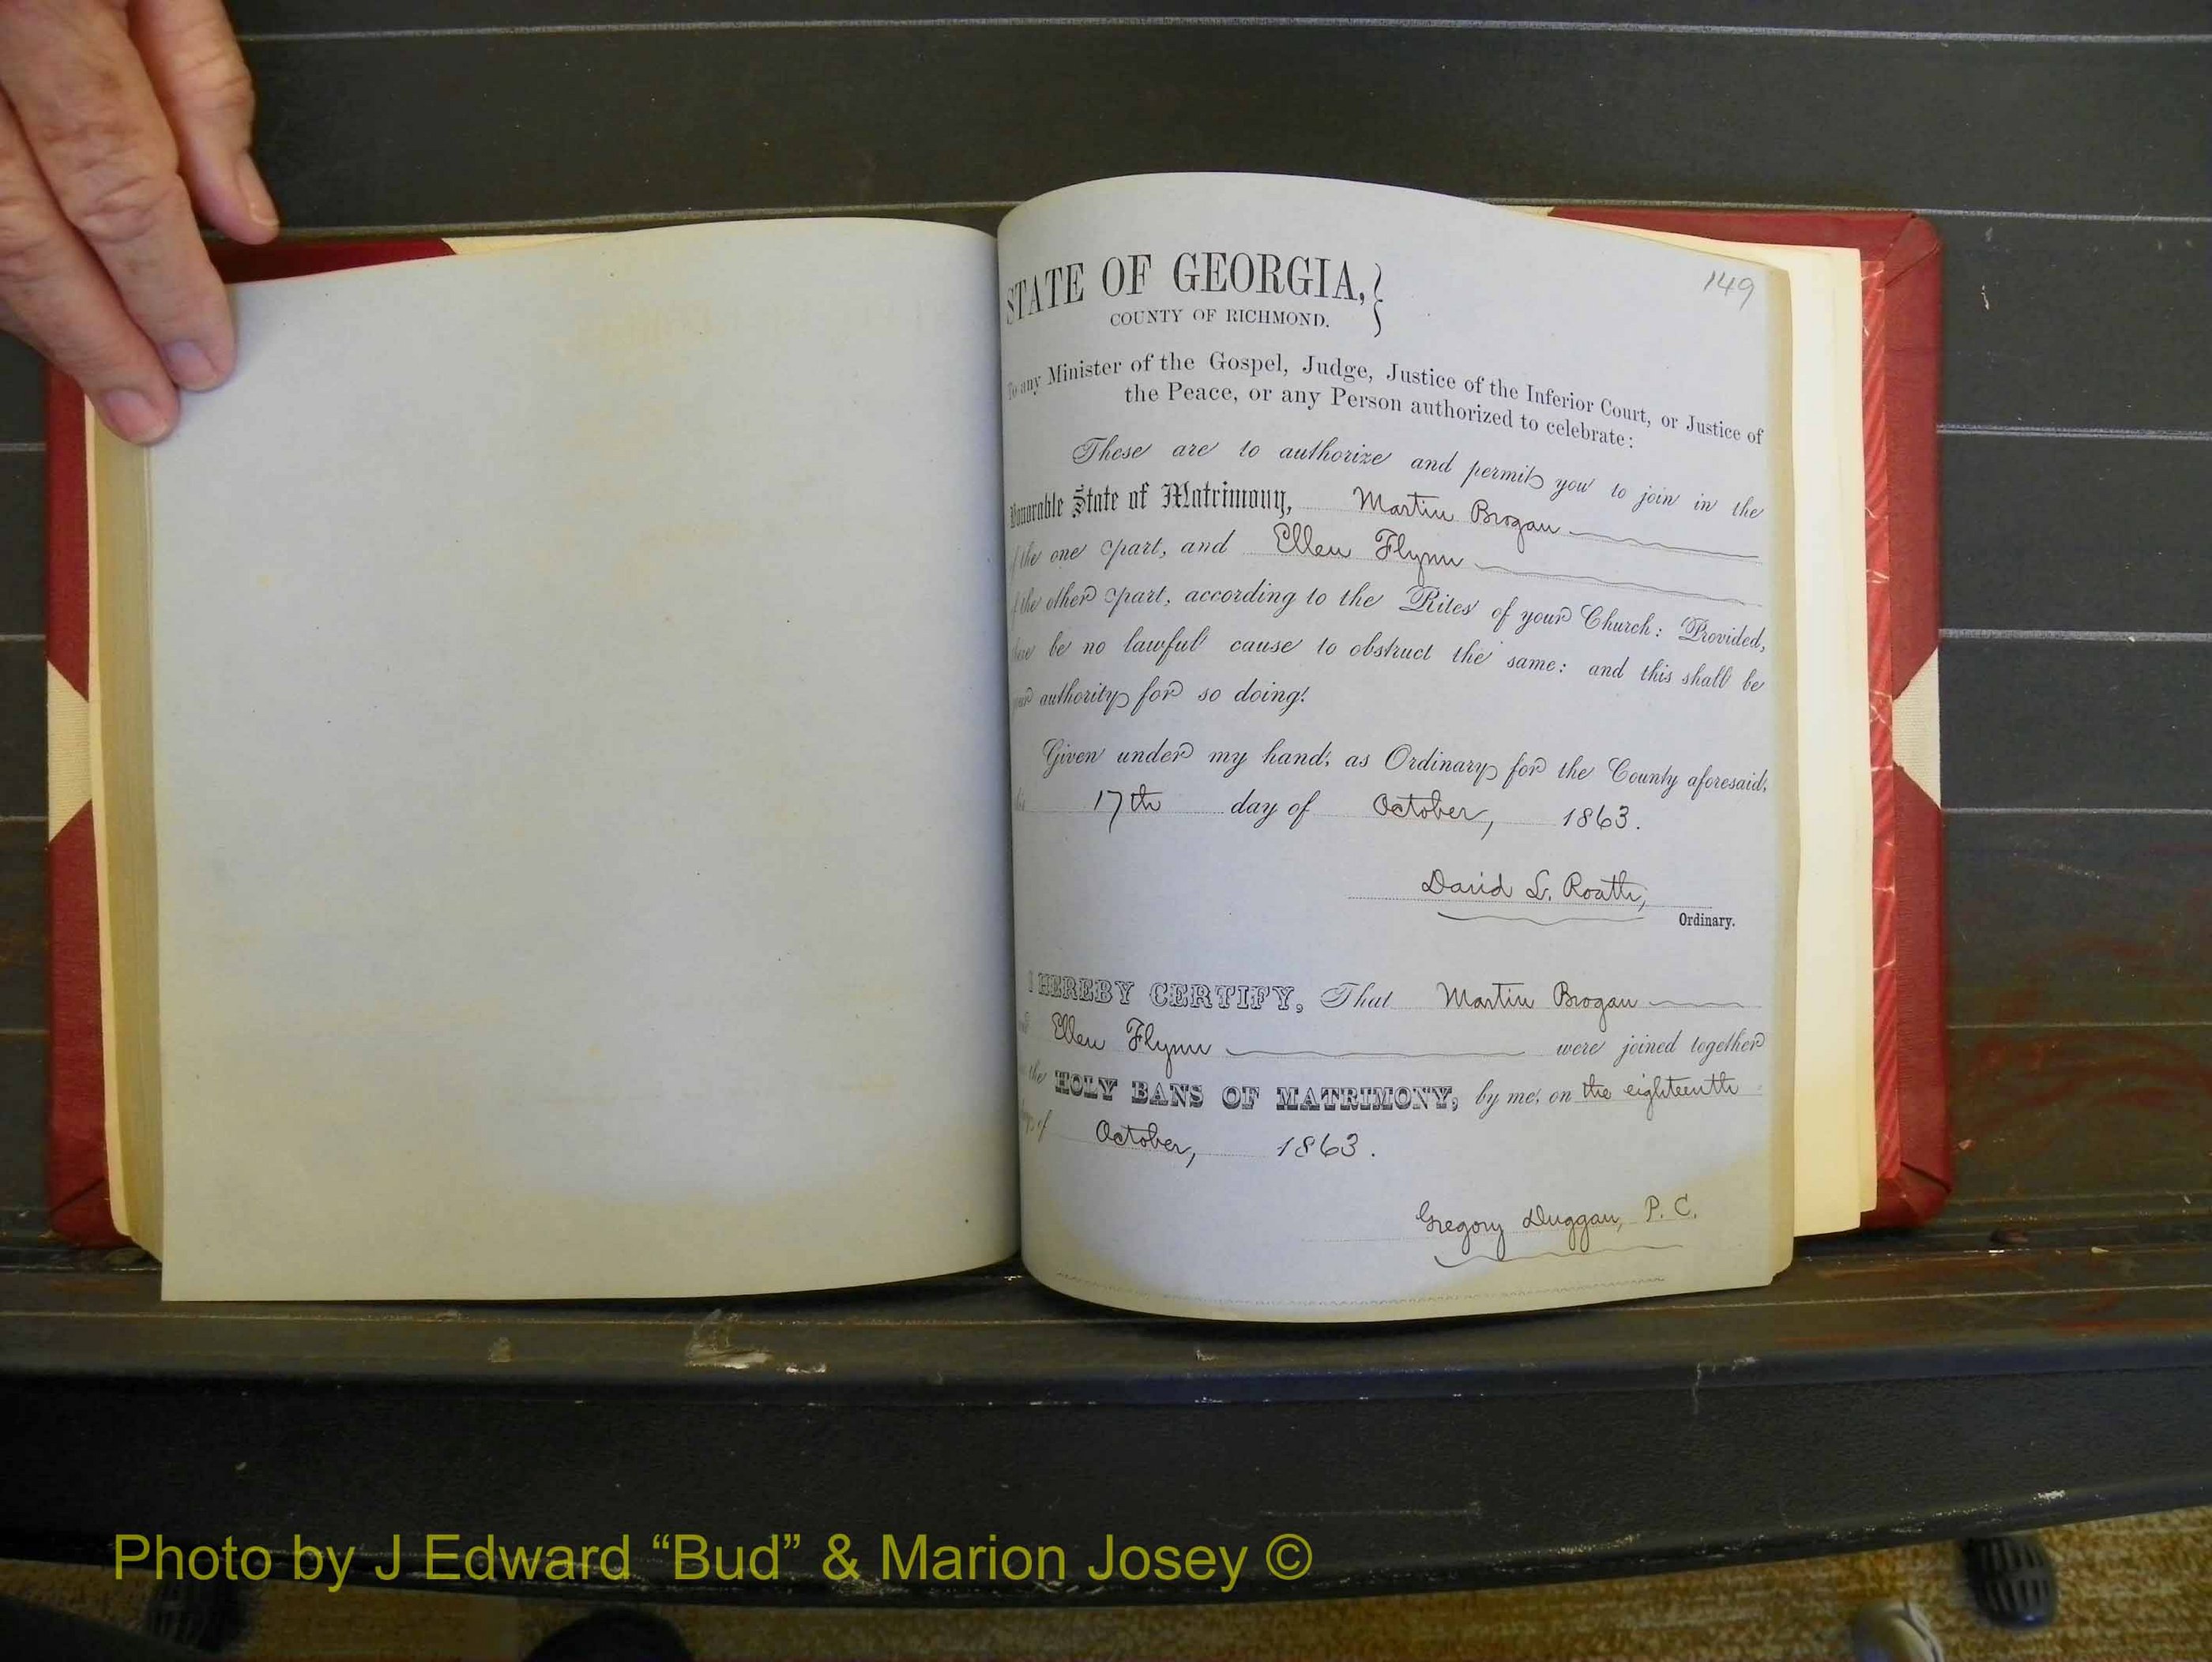 149
STATE OF GEORGIA,}
COUNTY OF RICHMOND.
To any Minister of the Gospel, Judge, Justice of the Inferior Court, or Justice of
the Peace, or any Person authorized to celebrate:
These are to authorize and permit you to join in the
Honorable State of Matrimony, Martin Brogan
of the one part, and Ellen Flynn
of the other part, according to the Rites of your Church: Provided,
there be no lawful cause to obstruct the same: and this shall be
your authority for so doing!
Given under my hand, as Ordinary for the County aforesaid,
this 17th day of October, 1863.
David L. Roath,
Ordinary.
I HEREBY CERTIFY, That Martin Brogan
and Ellen Flynn were joined together
in the HOLY BANS OF MATRIMONY, by me, on the eighteenth
day of October, 1863.
Gregory Duggan, P. C.
Photo by J Edward “Bud” & Marion Josey ©